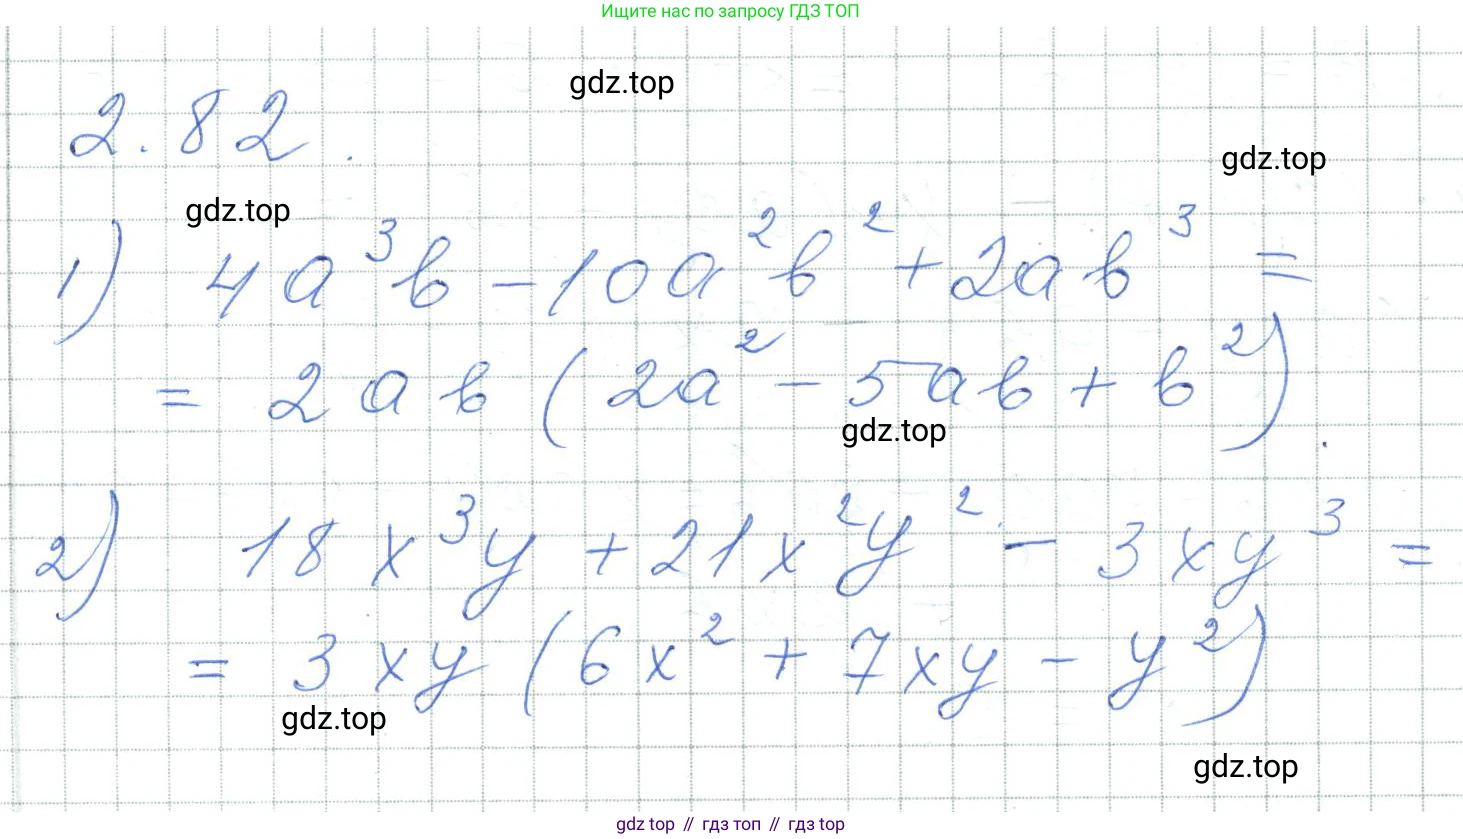 Ищите нас по запросу ГДЗ ТОП
gdz.top
2.82.
gdz.top
gdz.top
1) 4a³b - 10a²b² + 2ab³ =
= 2ab(2a² - 5ab + b²).
gdz.top
2) 18x³y + 21x²y² - 3xy³ =
= 3xy(6x² + 7xy - y²)
gdz.top
gdz.top
gdz top // гдз топ // гдз top